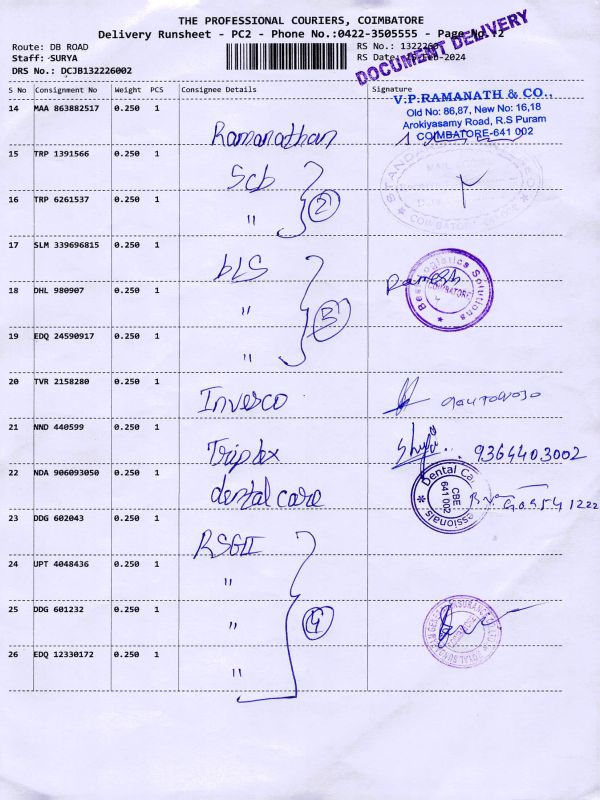 THE PROFESSIONAL COURIERS, COIMBATORE
Delivery Runsheet - PC2 - Phone No.:0422-3505555 - Page No.
DOCUMENT DELIVERY
Route: DB ROAD
RS No.:
Staff: SURYA
RS Date:
DRS No.: DCJB132226002
S No Consignment No Weight PCS Consignee Details Signature
V.P.RAMANATH & CO.,
Old No: 86,87, New No: 16,18
Arokiyasamy Road, R.S Puram
COIMBATORE-641 002
14 MAA 863882517 0.250 1 Ramanathan
15 TRP 1391566 0.250 1 Scb
16 TRP 6261537 0.250 1 " 2
17 SLM 339696815 0.250 1 bLS
18 DHL 980907 0.250 1 " 3 Ramesh
Best Logistics Solutions
COIMBATORE
19 EDQ 24590917 0.250 1 "
20 TVR 2158280 0.250 1 Invesco
21 NND 440599 0.250 1 Triplex 9364403002
22 NDA 906093050 0.250 1 dental care
Dental Ca
CBE
641 002
23 DDG 602043 0.250 1 RSGI
24 UPT 4048436 0.250 1 "
25 DDG 601232 0.250 1 " 4
26 EDQ 12330172 0.250 1 "